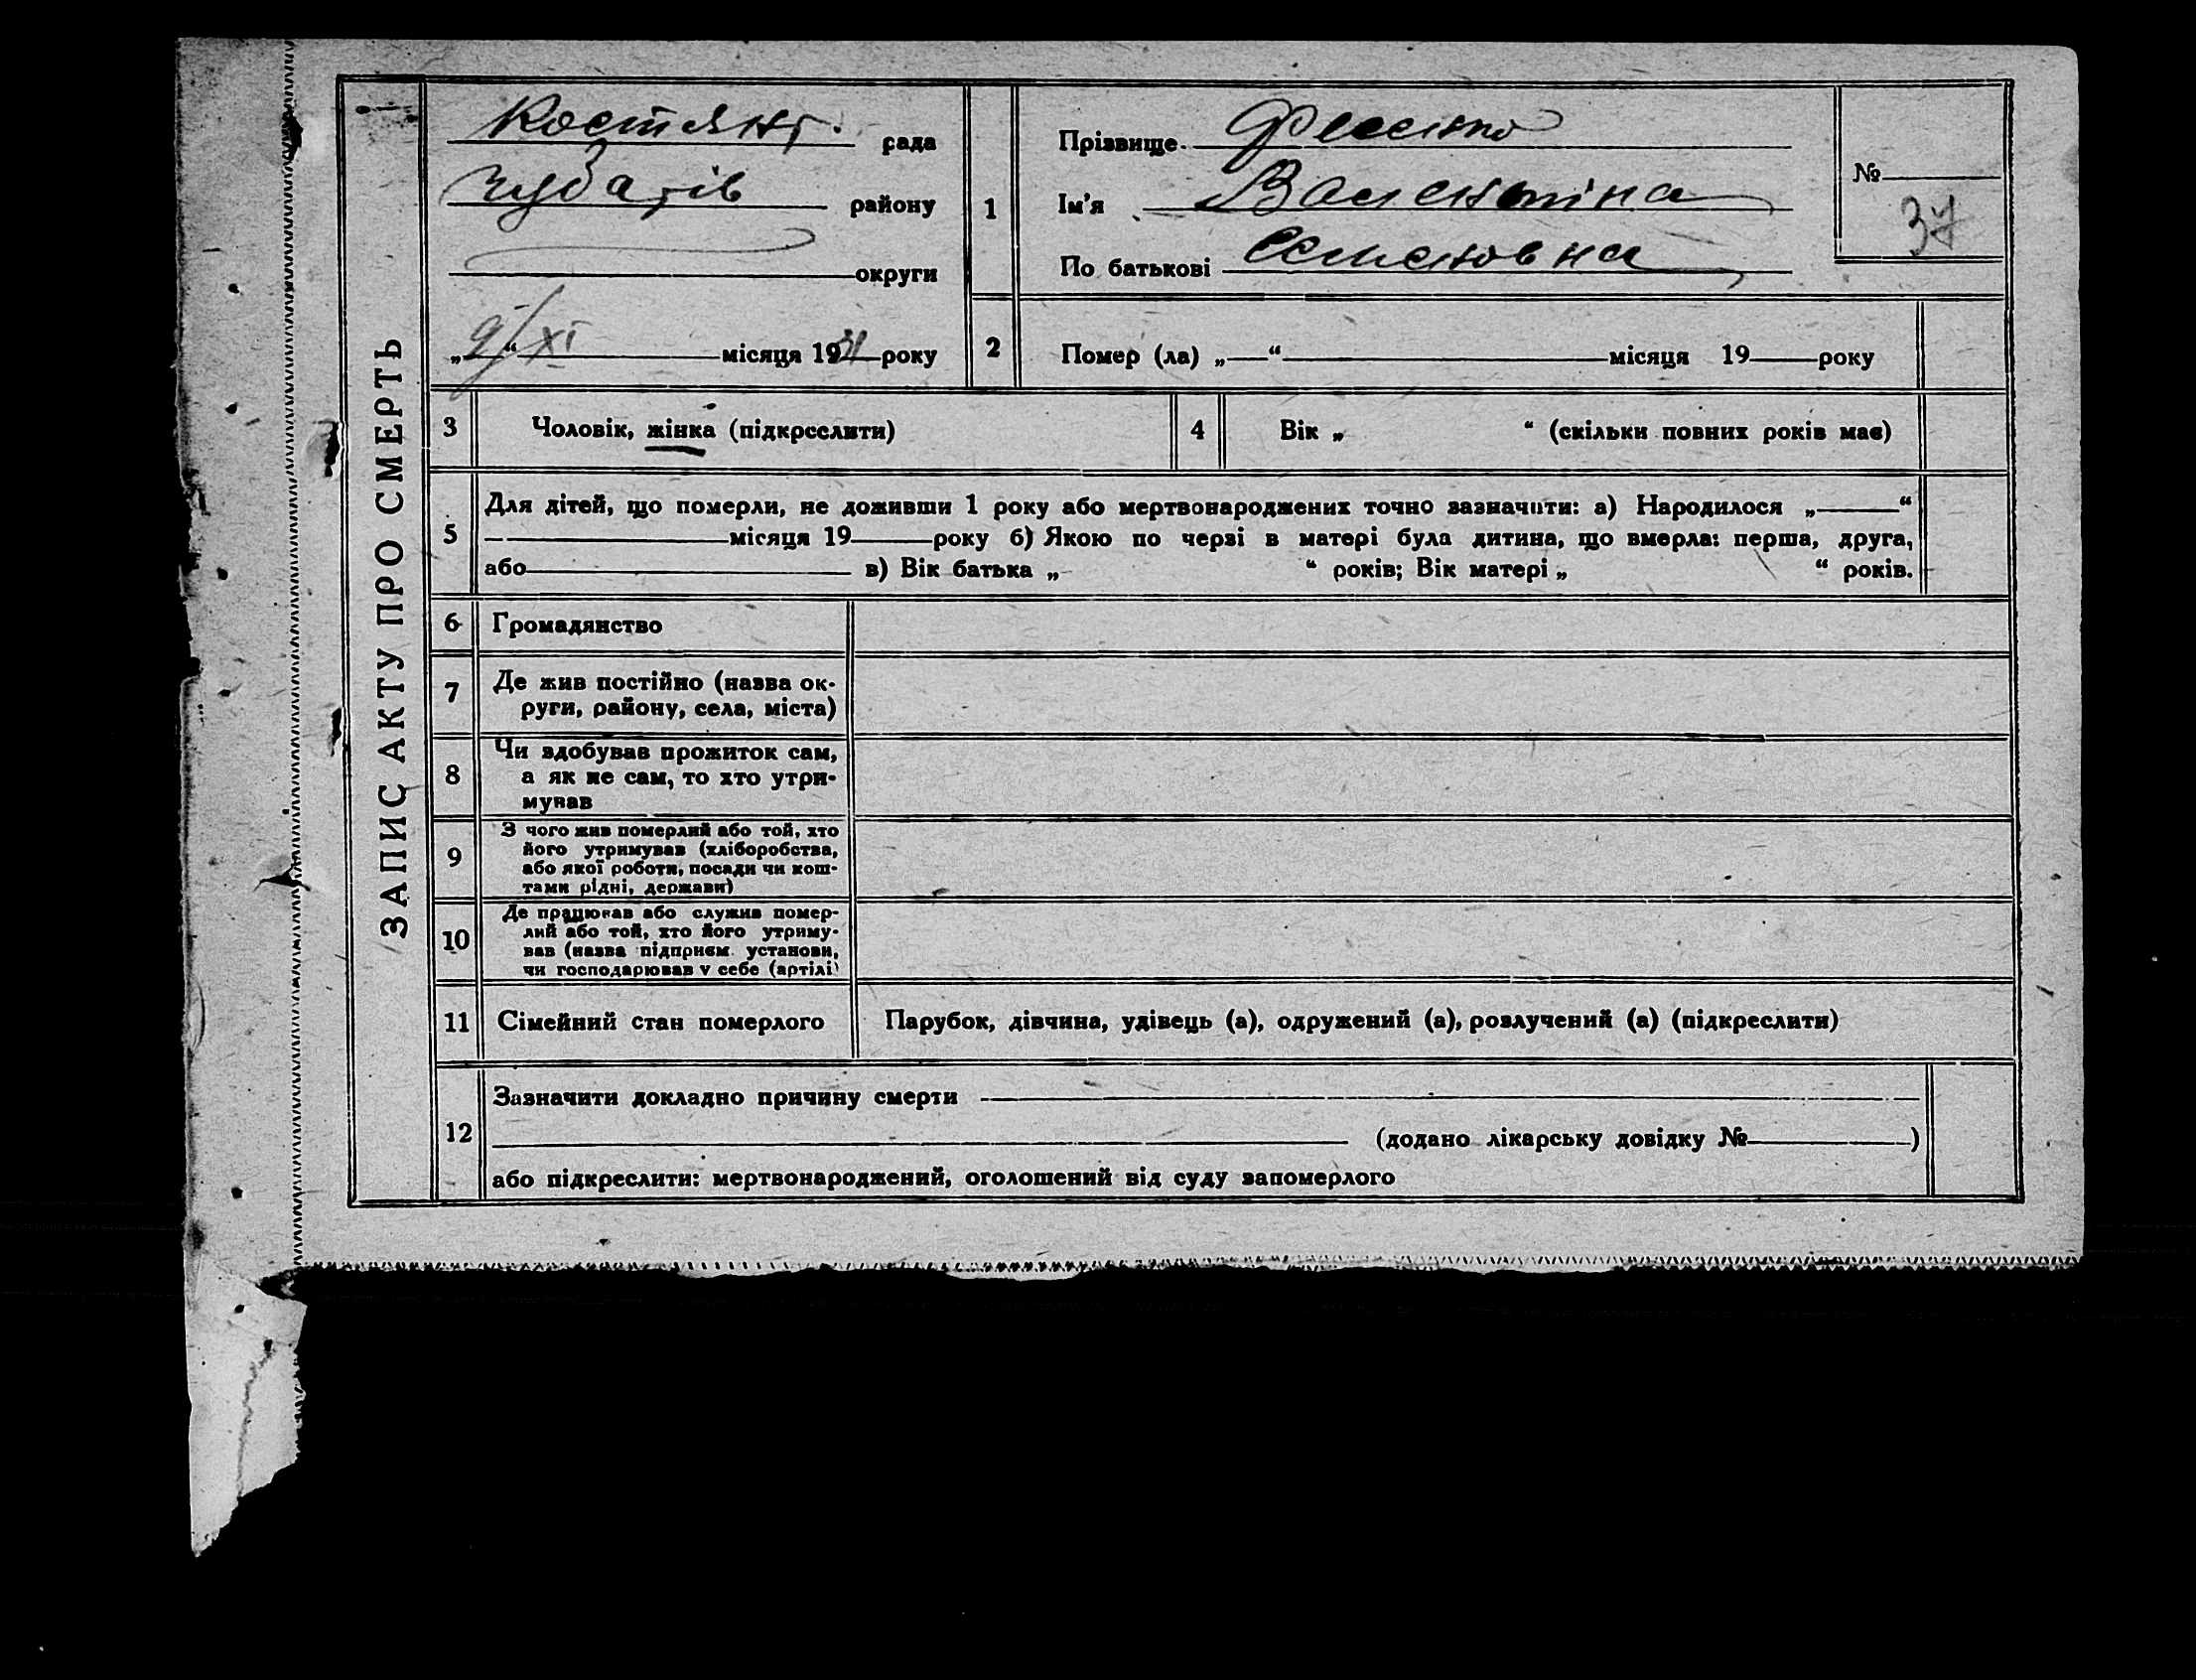 ЗАПИС АКТУ ПРО СМЕРТЬ
Костянт. рада
району
округи
„9“ XI місяця 1931 року
1
Прізвище Фесенко
Ім'я Валентіна
По батькові Семеновна
№
37
2 Помер (ла) „—“ місяця 19 року
3 Чоловік, жінка (підкреслити)
4 Вік „ “ (скільки повних років має)
5
Для дітей, що померли, не доживши 1 року або мертвонароджених точно зазначити: а) Народилося „ “
місяця 19 року б) Якою по черзі в матері була дитина, що вмерла: перша, друга,
або в) Вік батька „ “ років; Вік матері „ “ років.
6 Громадянство
7 Де жив постійно (назва ок-
руги, району, села, міста)
8 Чи здобував прожиток сам,
а як не сам, то хто утри-
мував
9 З чого жив померлий або той, хто
його утримував (хліборобства,
або якої роботи, посади чи кош-
тами рідні, держави)
10 Де працював або служив помер-
лий або той, хто його утриму-
вав (назва підприєм. установи,
чи господарював у себе (артілі)
11 Сімейний стан померлого Парубок, дівчина, удівець (а), одружений (а), розлучений (а) (підкреслити)
12
Зазначити докладно причину смерти
(додано лікарську довідку № )
або підкреслити: мертвонароджений, оголошений від суду запомерлого